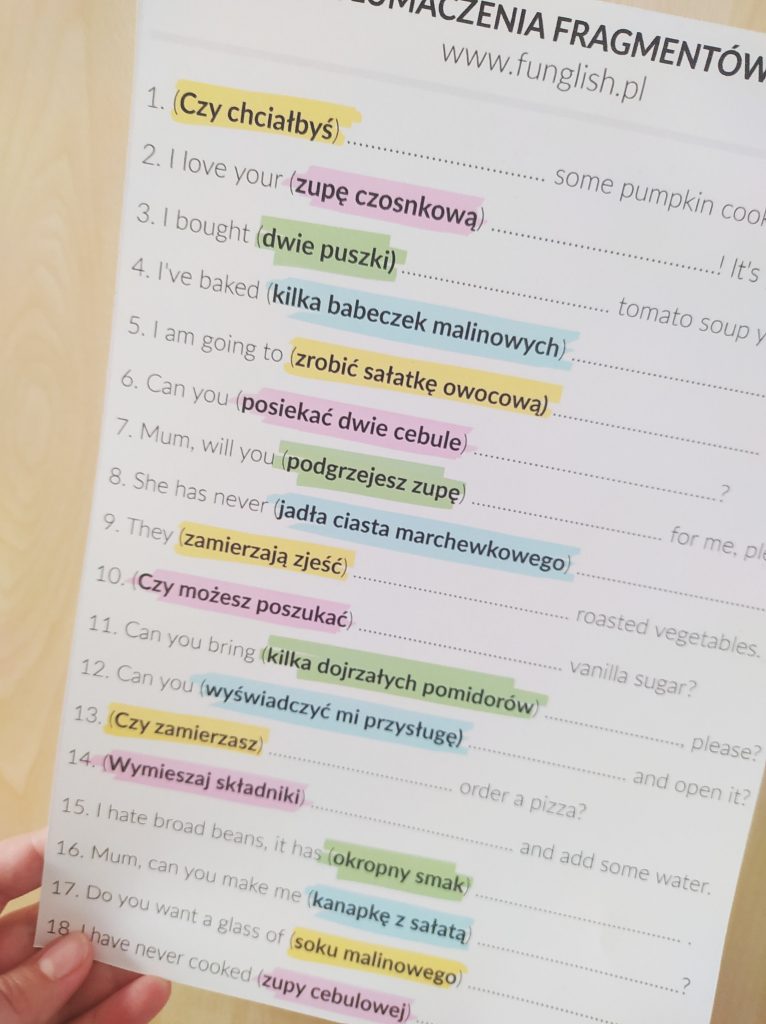 TŁUMACZENIA FRAGMENTÓW
www.funglish.pl
1. (Czy chciałbyś) .................................................. some pumpkin
2. I love your (zupę czosnkową) ..........................................................! It's
3. I bought (dwie puszki) .................................................... tomato soup
4. I've baked (kilka babeczek malinowych) ..................................................
5. I am going to (zrobić sałatkę owocową) ..................................................
6. Can you (posiekać dwie cebule) .............................................................?
7. Mum, will you (podgrzejesz zupę) ................................................. for me,
8. She has never (jadła ciasta marchewkowego) ..................................................
9. They (zamierzają zjeść) ....................................................... roasted vegetables.
10. (Czy możesz poszukać) .................................................... vanilla sugar?
11. Can you bring (kilka dojrzałych pomidorów) ..................................... please?
12. Can you (wyświadczyć mi przysługę) ........................................ and open it?
13. (Czy zamierzasz) ............................................... order a pizza?
14. (Wymieszaj składniki) ..................................................... and add some water.
15. I hate broad beans, it has (okropny smak) ...................................................... .
16. Mum, can you make me (kanapkę z sałatą) .....................................................?
17. Do you want a glass of (soku malinowego) ..................................................
18. I have never cooked (zupy cebulowej) ..................................................